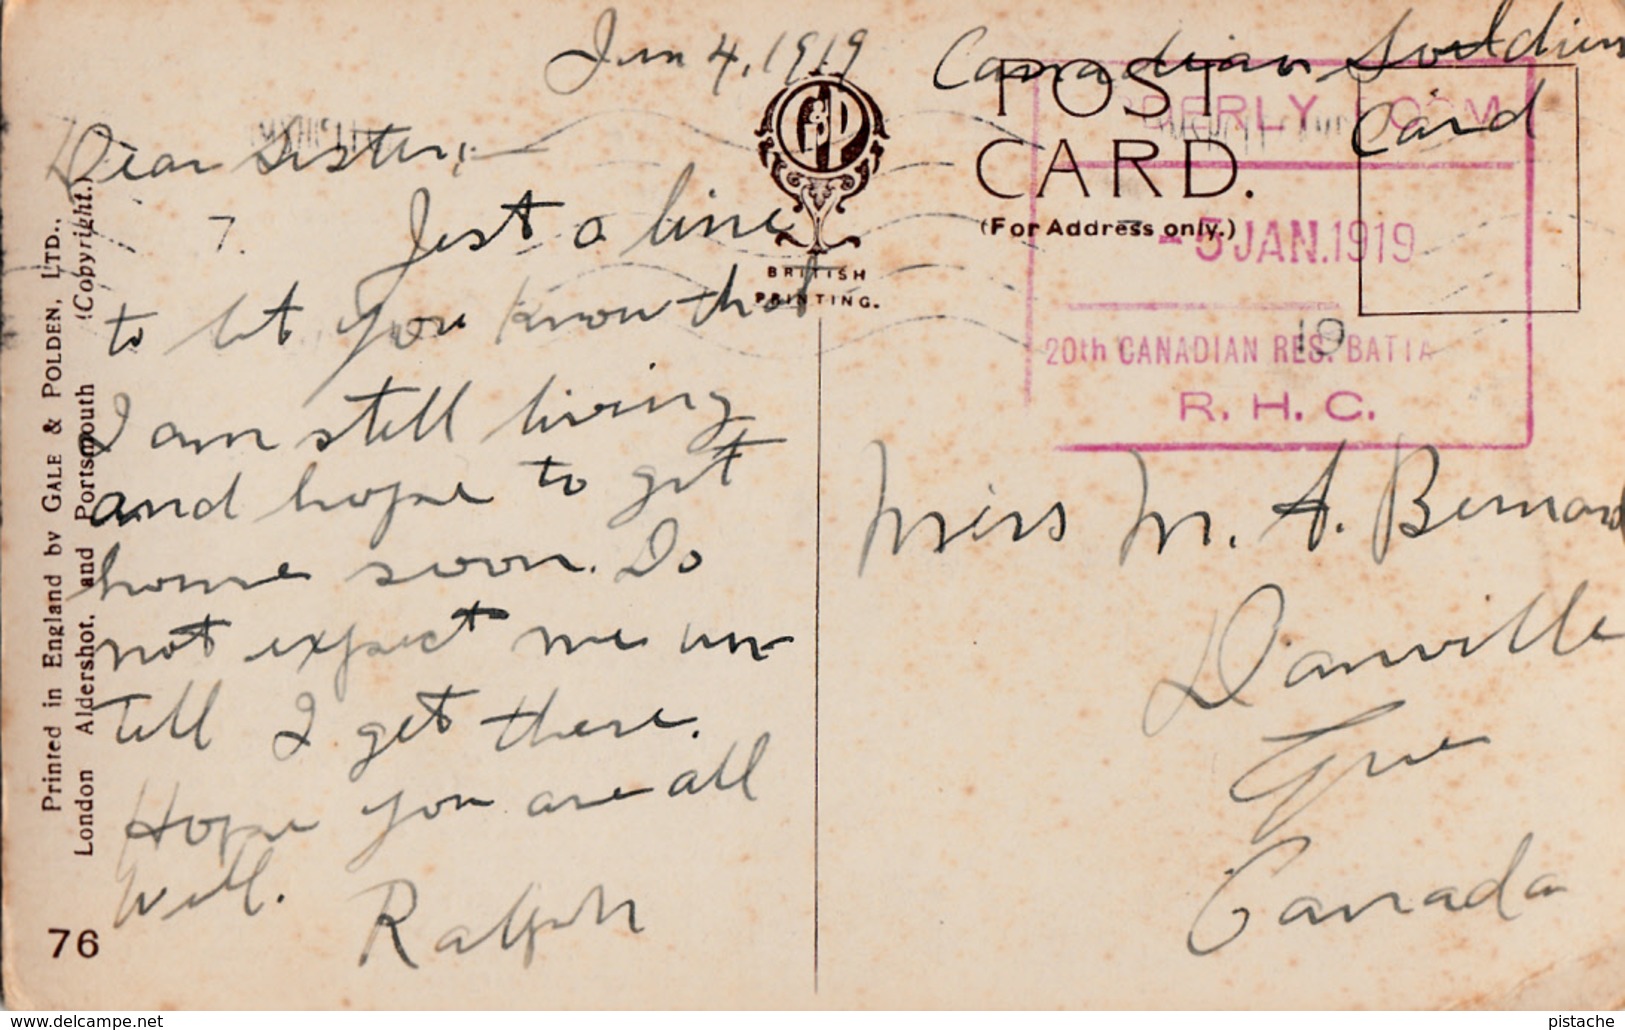 Jan 4, 1919
Dear Sister;—
7.
Just a line
to let you know that
I am still living
and hope to get
home soon. Do
not expect me un-
till I get there.
Hope you are all
well.
Ralph
76
Printed in England by GALE & POLDEN, LTD.,
London Aldershot, and Portsmouth (Copyright.)
G&P
BRITISH
PRINTING.
Canadian Soldiers
Card
POST
CARD.
(For Address only.)
ERLY ROOM
-5 JAN. 1919
20th CANADIAN RES. BATTA
R. H. C.
19
Miss M. A. Bernard
Danville
Que
Canada
www.delcampe.net
pistache